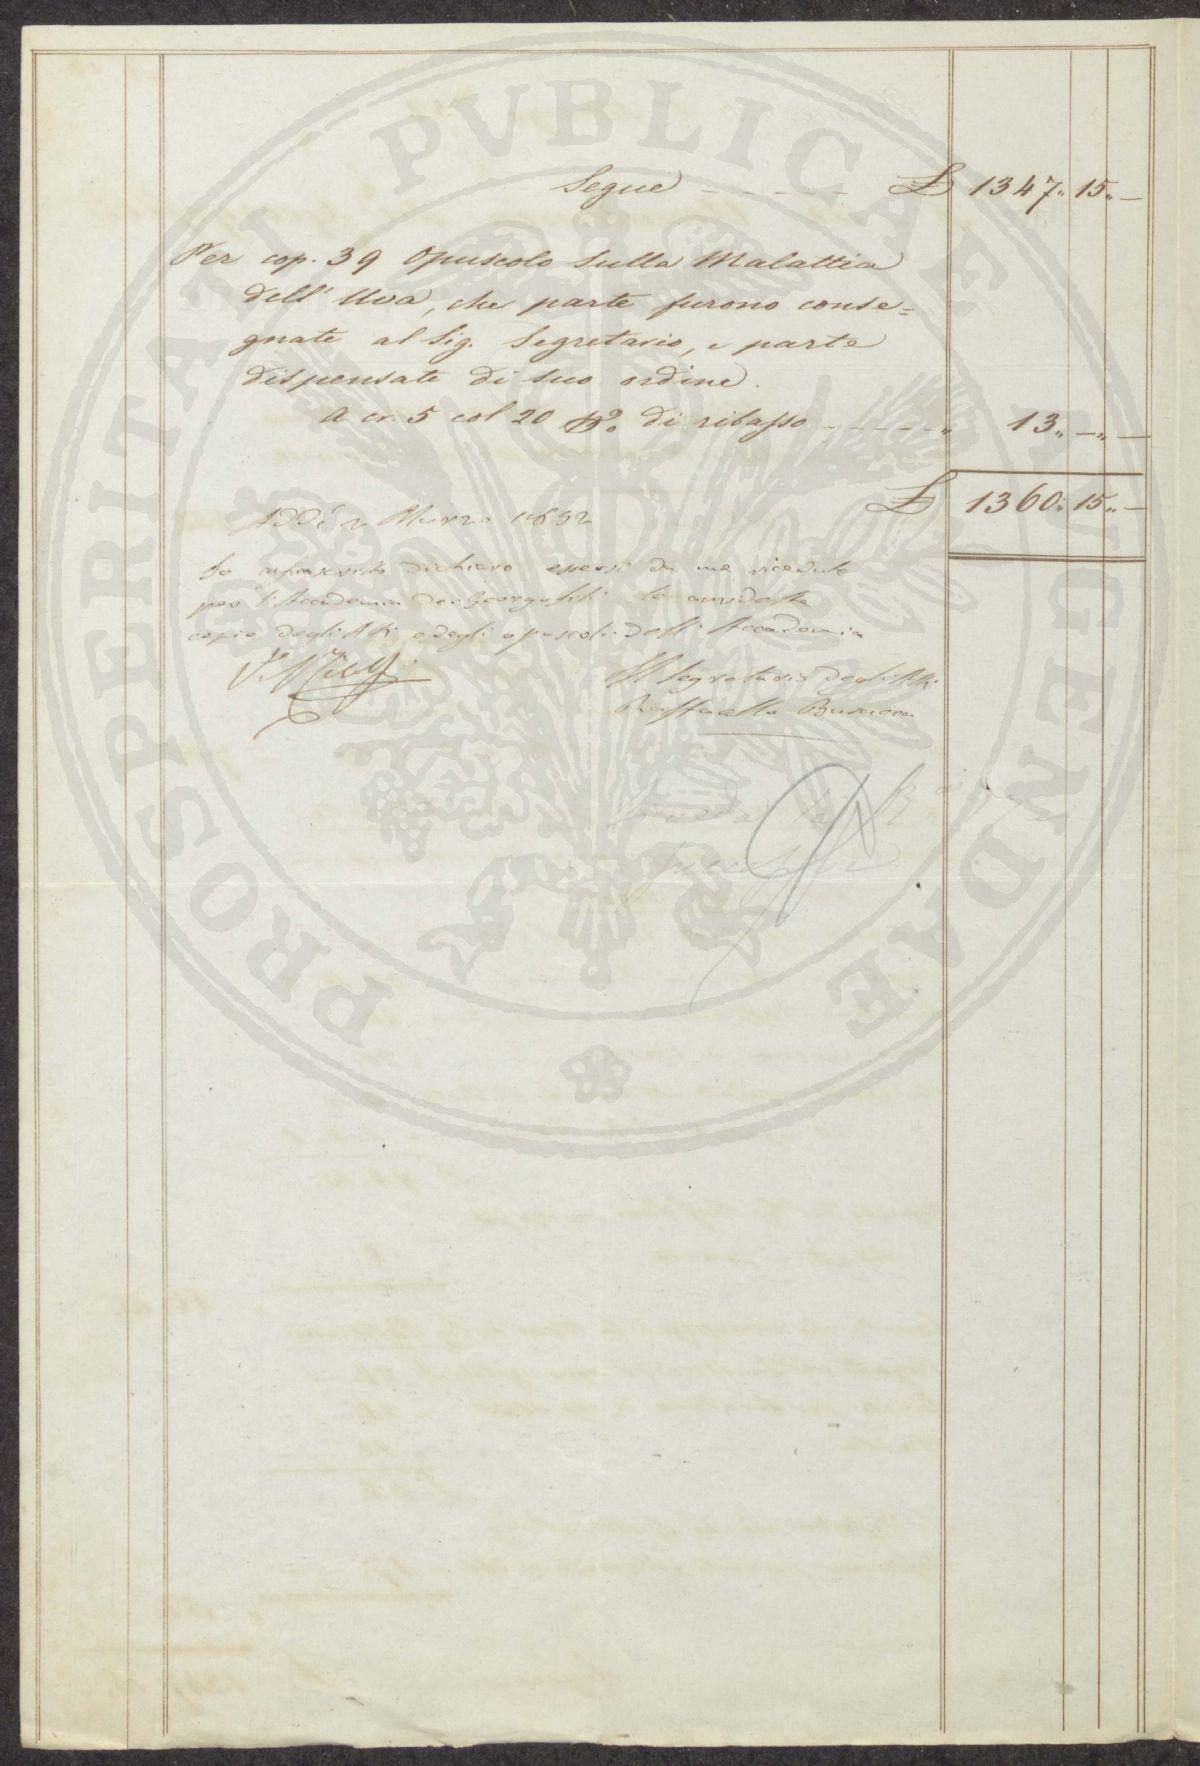 Segue £ 1347.. 15.. —
Per cop. 39 Opuscolo Sulla Malattia
dell' Uva, che parte furono conse=
gnate al Sig. Segretario, e parte
dispensate di suo ordine.
A cr. 5 col 20 di ribasso .. 13.. —.. —
£ 1360.. 15.. —
Addì 2 Marzo 1852
Io dichiaro essersi da me ricevute
per l'Accademia dei Georgofili le
copie degli Atti e degli opuscoli dell' Accademia
Il Segretario degli Atti
Raffaello Busacca
PROSPERITATI PVBLICAE AVGENDAE